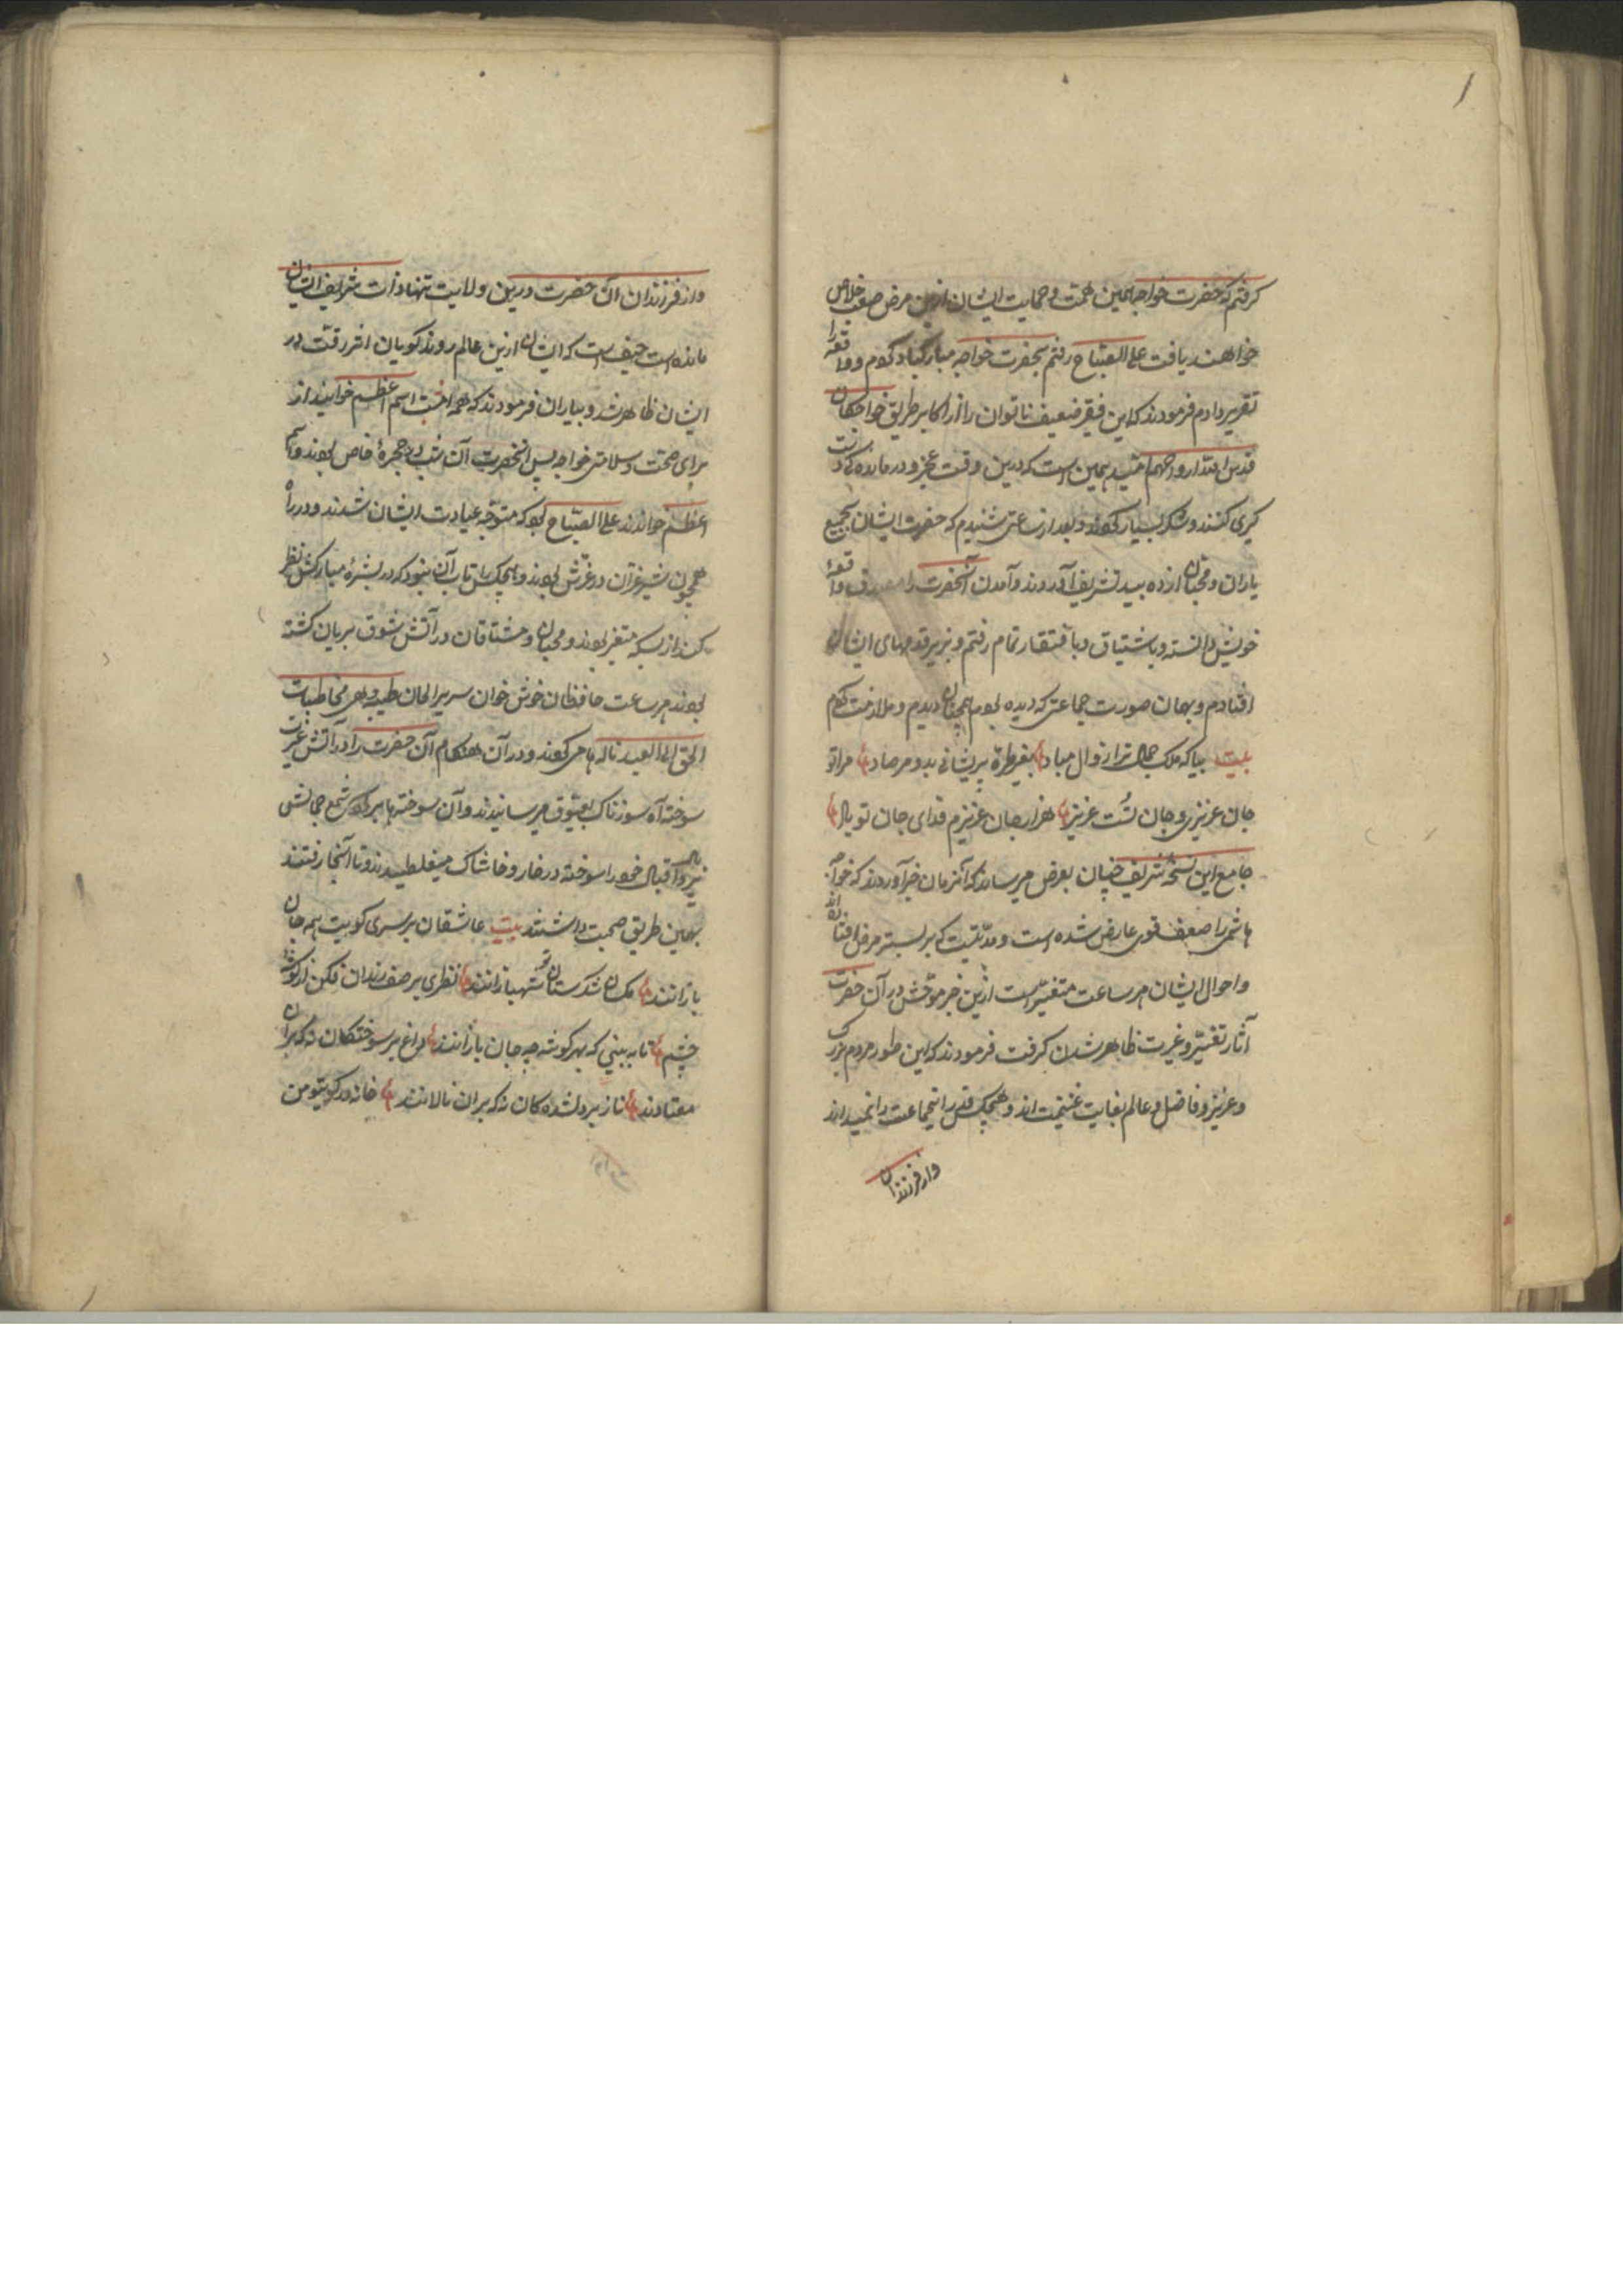 کرفتم که حضرت خواجه بهمین همت و حمایت ایشان ازین مرض صعب خلاص
خواهند یافت علی الصباح رفتم بحضرت خواجه مبارکباد کردم و واقعه را
تقریر دادم فرمودند که این فقیر ضعیف ناتوان را از اکابر طریق خواجکان
قدس الله ارواحهم امید همین است که درین وقت عجز و درماندکی دست
کیری کنند و شکر بسیار کردند و بعد از ساعتی شنیدم که حضرت ایشان بجمیع
یاران و محبان از ده بید تشریف آوردند و آمدن آنحضرت را مصدق واقعهٔ
خویش دانسته و باشتیاق و بافتقار تمام رفتم و بزیر قدمهای ایشان
افتادم و بهمان صورت جماعتی که دیده بودم همچنان دیدم و ملازمت کردم
بیت بیا که ملک جمال ترا زوال مباد بغیر طره پریشانی بدو مرصاد مرا تو
جان عزیزی و جان تست عزیز هزار جان عزیزم فدای جان تو باد
جامع این نسخهٔ شریف چنان بعرض میرساند که آنزمان خبر آوردند که خواجه
هاشمی را ضعف قوی عارض شده است و مدتیست که بر بستر مرض افتاده اند
و احوال ایشان هر ساعت متغیر است ازین خبر موحش در آن حضرت
آثار تغییر و غیرت ظاهر شدن کرفت فرمودند که این طور مردم بزرک
و عزیز و فاضل و عالم بغایت غنیمت اند و هیچکس قدر اینجماعت را نمیداند
و از فرزندان
و از فرزندان آن حضرت درین ولایت تنها ذات شریف ایشان
مانده است حیف است که ایشان ازین عالم روند کویان اثر رقت در
ایشان ظاهر شد و بیاران فرمودند که همه امشب اسم اعظم خوانید از
برای صحت و سلامتی خواجه پس آنحضرت آن شب در حجرهٔ خاص بودند و اسم
اعظم خواندند علی الصباح بود که متوجه عیادت ایشان شدند و در راه
همچون شیر غران در غرش بودند و هیچکس را تاب آن نبود که در بشرهٔ مبارکش نظر
کند از بسکه متغیر بودند و محبان و مشتاقان در آتش شوق بریان کشته
بودند هر ساعت حافظان خوش خوان سریر الحان طیبه و بهر مخاطبات
الحق الی العبید ناله ها می کردند و در آن هنکام آن حضرت را در آتش غیرت
سوخته آه سوزناک بعیوق میرسانیدند و آن سوخته ها بر کرد شمع جمالش
پروبال اقبال خود را سوخته در خار و خاشاک میغلطیدند و تا آنجا رفتند
بهمین طریق صحبت داشتند بیت عاشقان بر سر کویت همه جان
بازانند مکسان شکرستان تو شهبازانند نظری بر صف رندان فکن از کوشهٔ
چشم تا به بینی که بهر کوشه چه جان بازانند داغ بر سوختکان نه که بران
معتادند ناز بر دلشدکان نه که بران نالانند خانه در کوی تو من